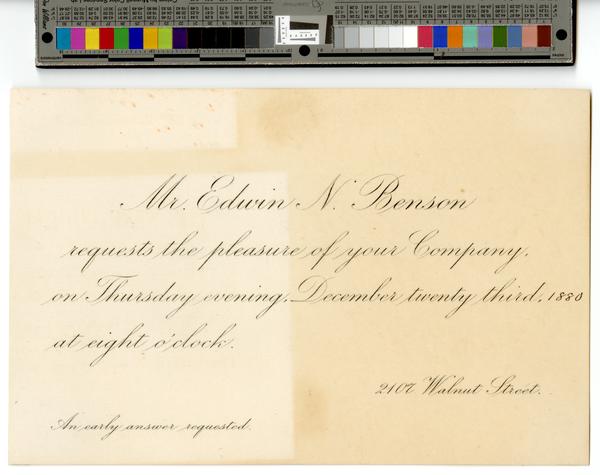 Mr. Edwin N. Benson
requests the pleasure of your Company,
on Thursday evening, December twenty third, 1880
at eight o'clock.
2107 Walnut Street.
An early answer requested.